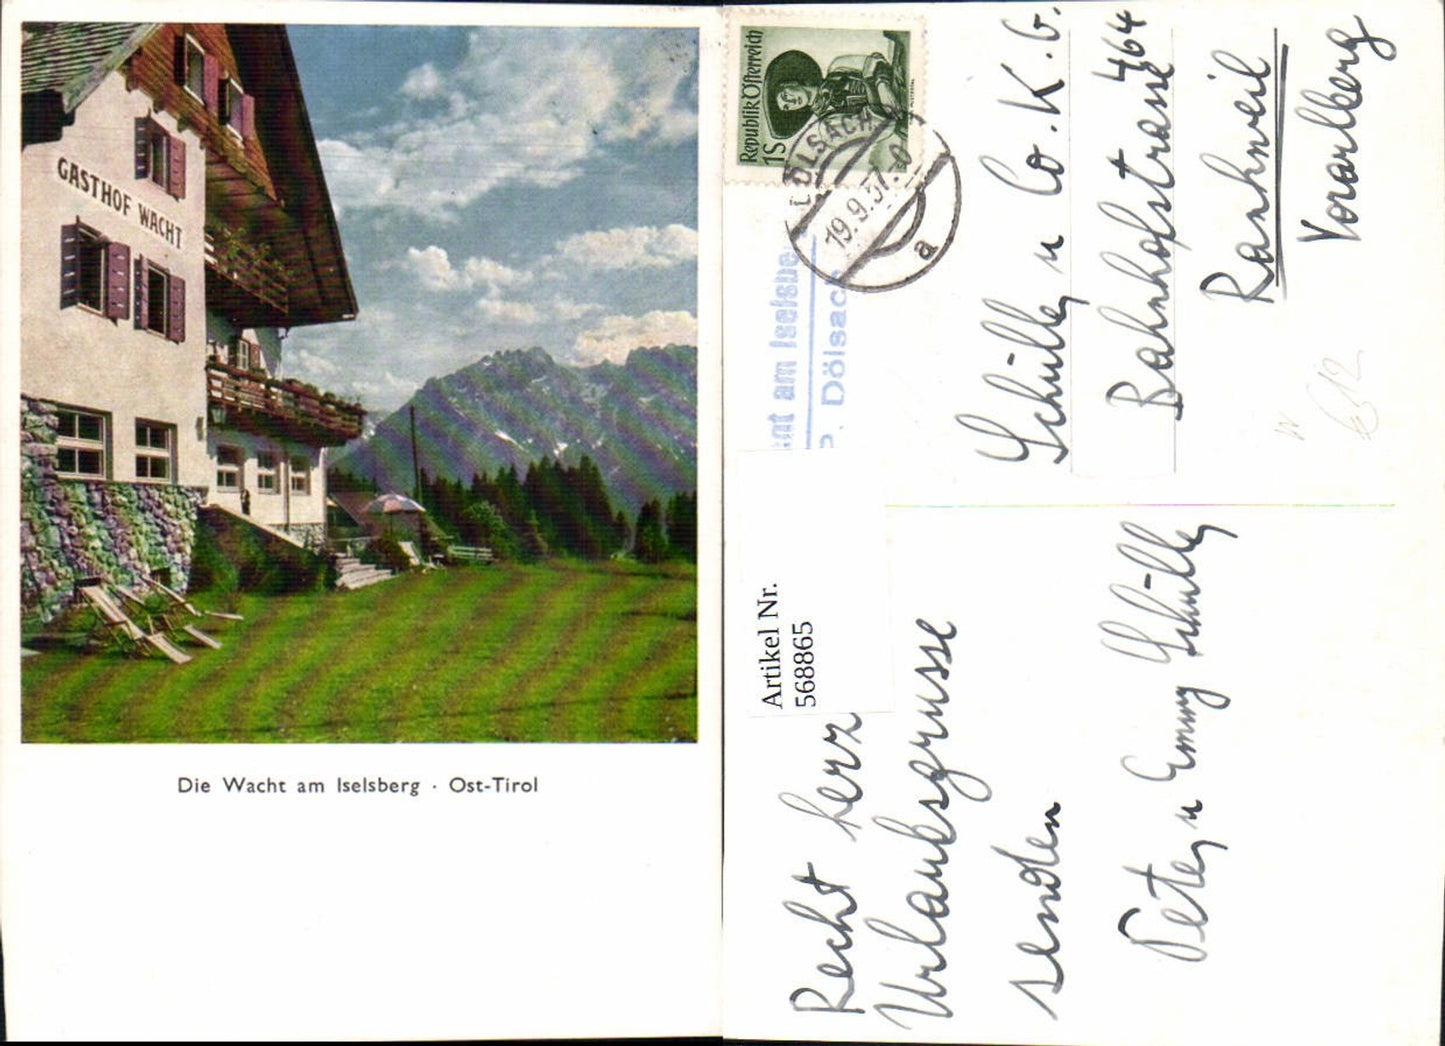 GASTHOF WACHT
Die Wacht am Iselsberg · Ost-Tirol
Republik Österreich
1S
DÖLSACH
19.9.57
a
am Iselsbe
P. Dölsach
Schüller u Co. K. G.
Bahnhofstrasse 464
Rankweil
Vorarlberg
Artikel Nr.
568865
Recht herz
Urlaubsgrüsse
senden
Peter u Emmy Schüller